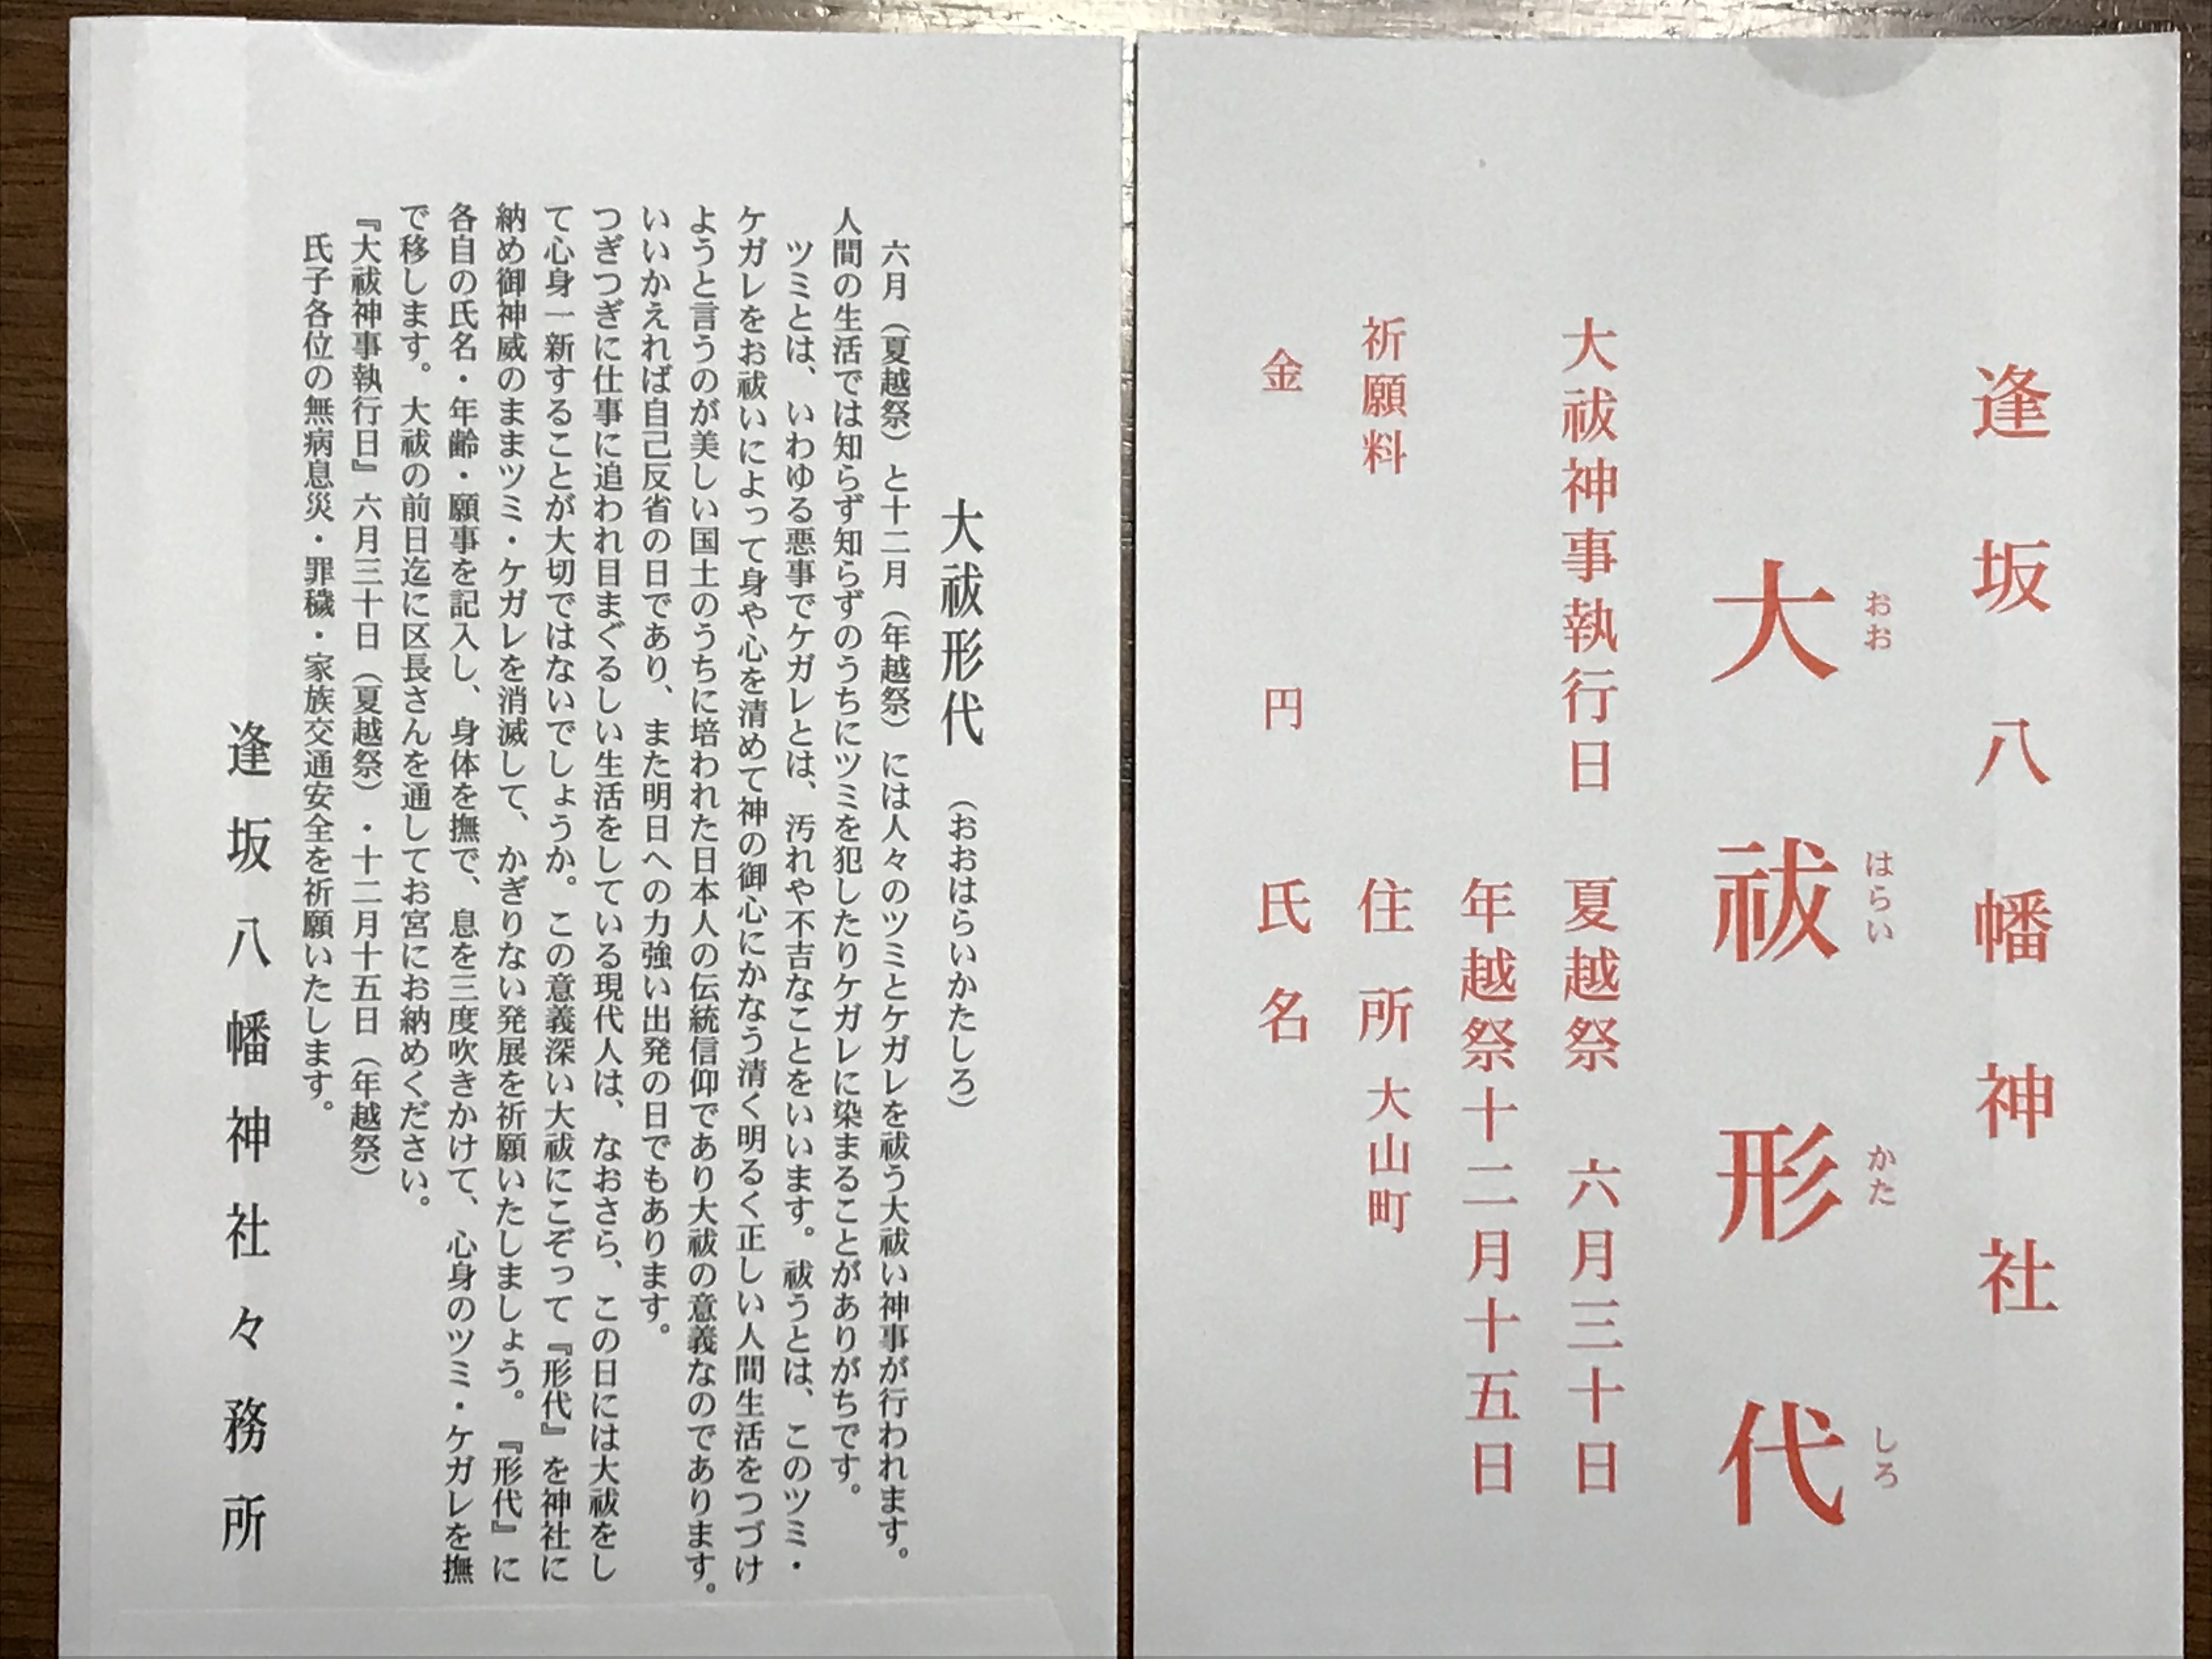 逢坂八幡神社
おお はらい かた しろ
大祓形代
大祓神事執行日 夏越祭 六月三十日
年越祭十二月十五日
祈願料 住所 大山町
金 円 氏名
大祓形代 (おおはらいかたしろ)
六月(夏越祭)と十二月(年越祭)には人々のツミとケガレを祓う大祓い神事が行われます。
人間の生活では知らず知らずのうちにツミを犯したりケガレに染まることがありがちです。
ツミとは、いわゆる悪事でケガレとは、汚れや不吉なことをいいます。祓うとは、このツミ・
ケガレをお祓いによって身や心を清めて神の御心にかなう清く明るく正しい人間生活をつづけ
ようと言うのが美しい国土のうちに培われた日本人の伝統信仰であり大祓の意義なのであります。
いいかえれば自己反省の日であり、また明日への力強い出発の日でもあります。
つぎつぎに仕事に追われ目まぐるしい生活をしている現代人は、なおさら、この日には大祓をし
て心身一新することが大切ではないでしょうか。この意義深い大祓にこぞって『形代』を神社に
納め御神威のままツミ・ケガレを消滅して、かぎりない発展を祈願いたしましょう。『形代』に
各自の氏名・年齢・願事を記入し、身体を撫で、息を三度吹きかけて、心身のツミ・ケガレを撫
で移します。大祓の前日迄に区長さんを通してお宮にお納めください。
『大祓神事執行日』六月三十日(夏越祭)・十二月十五日(年越祭)
氏子各位の無病息災・罪穢・家族交通安全を祈願いたします。
逢坂八幡神社々務所